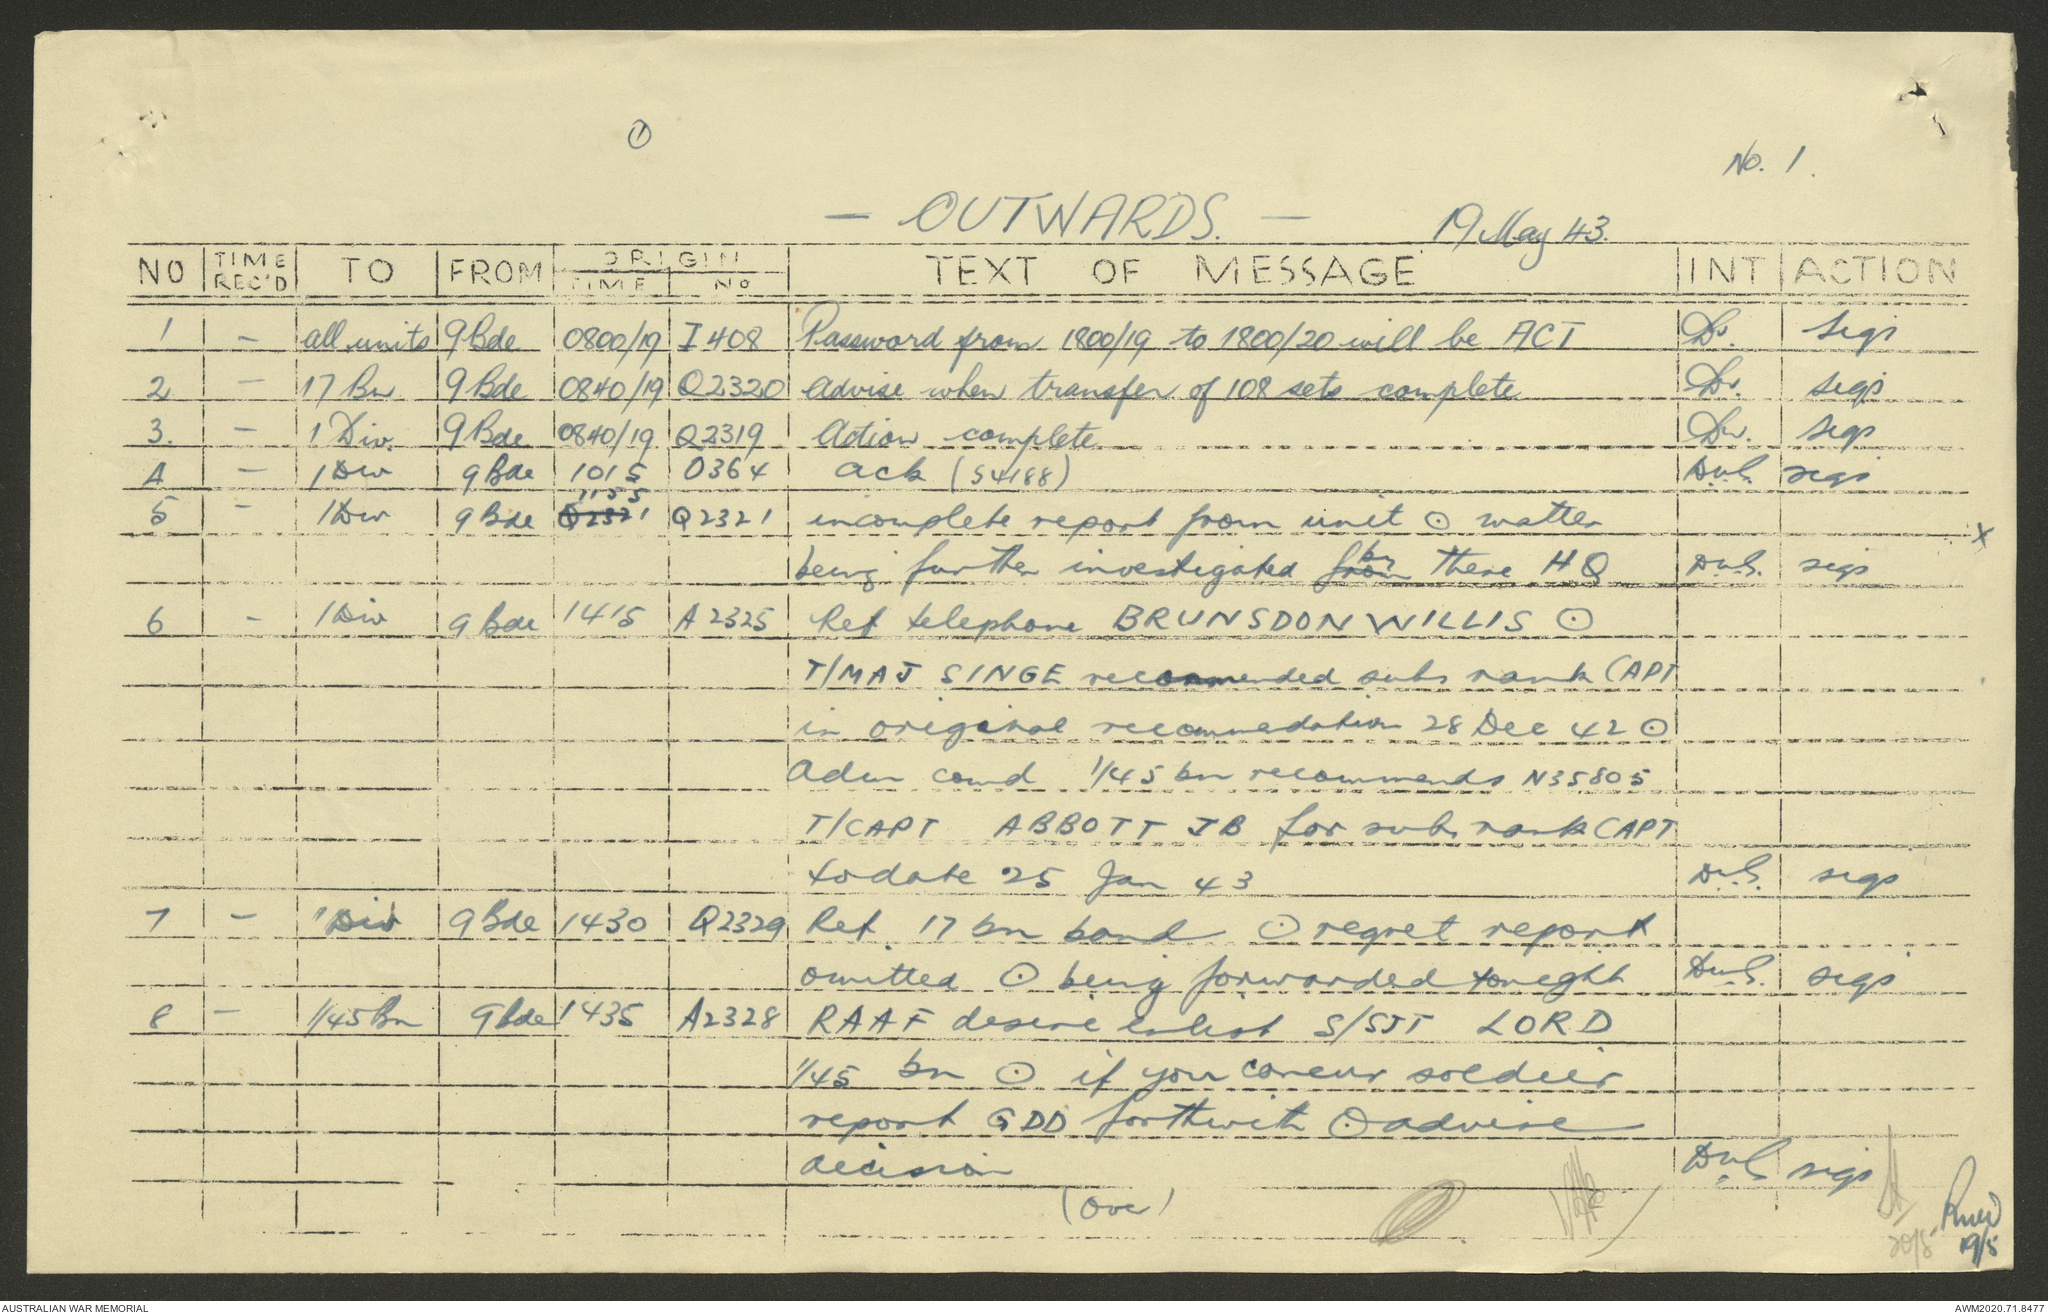 ①
No. 1.
— OUTWARDS. —
19 May 43.
NO | TIME REC'D | TO | FROM | ORIGIN TIME | ORIGIN No | TEXT OF MESSAGE | INT | ACTION
1 | – | all units | 9 Bde | 0800/19 | I 408 | Password from 1800/19 to 1800/20 will be ACT | Dw. | sigs
2 | – | 17 Bn | 9 Bde | 0840/19 | Q2320 | Advise when transfer of 108 sets complete | Dw. | sigs
3. | – | 1 Div. | 9 Bde | 0840/19 | Q2319 | Action complete | Dw. | sigs
4 | – | 1 Div | 9 Bde | 1015 | O364 | ack (S4188) | D.W.G. | sigs
5 | – | 1 Div | 9 Bde | 1155 Q2321 | Q2321 | incomplete report from unit ⊙ matter
being further investigated from by there HQ | D.W.G. | sigs
X
6 | – | 1 Div | 9 Bde | 1415 | A2325 | Ref telephone BRUNSDON WILLIS ⊙
T/MAJ SINGE recommended subs rank CAPT
in original recommedation 28 Dec 42 ⊙
Adm comd 1/45 bn recommends N35805
T/CAPT ABBOTT JB for subs rank CAPT
to date 25 Jan 43 | D.W.G. | sigs
7 | – | 1 Div | 9 Bde | 1430 | Q2329 | Ref. 17 bn band ⊙ regret report
omitted ⊙ being forwarded tonight | D.W.G. | sigs
8 | – | 1/45 Bn | 9 Bde | 1435 | A2328 | RAAF desire enlist S/SJT LORD
1/45 bn ⊙ if you concur soldier
report GDD forthwith ⊙ advise
decision | D.W.G. | sigs
(Over)
20/5
19/5
AUSTRALIAN WAR MEMORIAL
AWM2020.71.8477